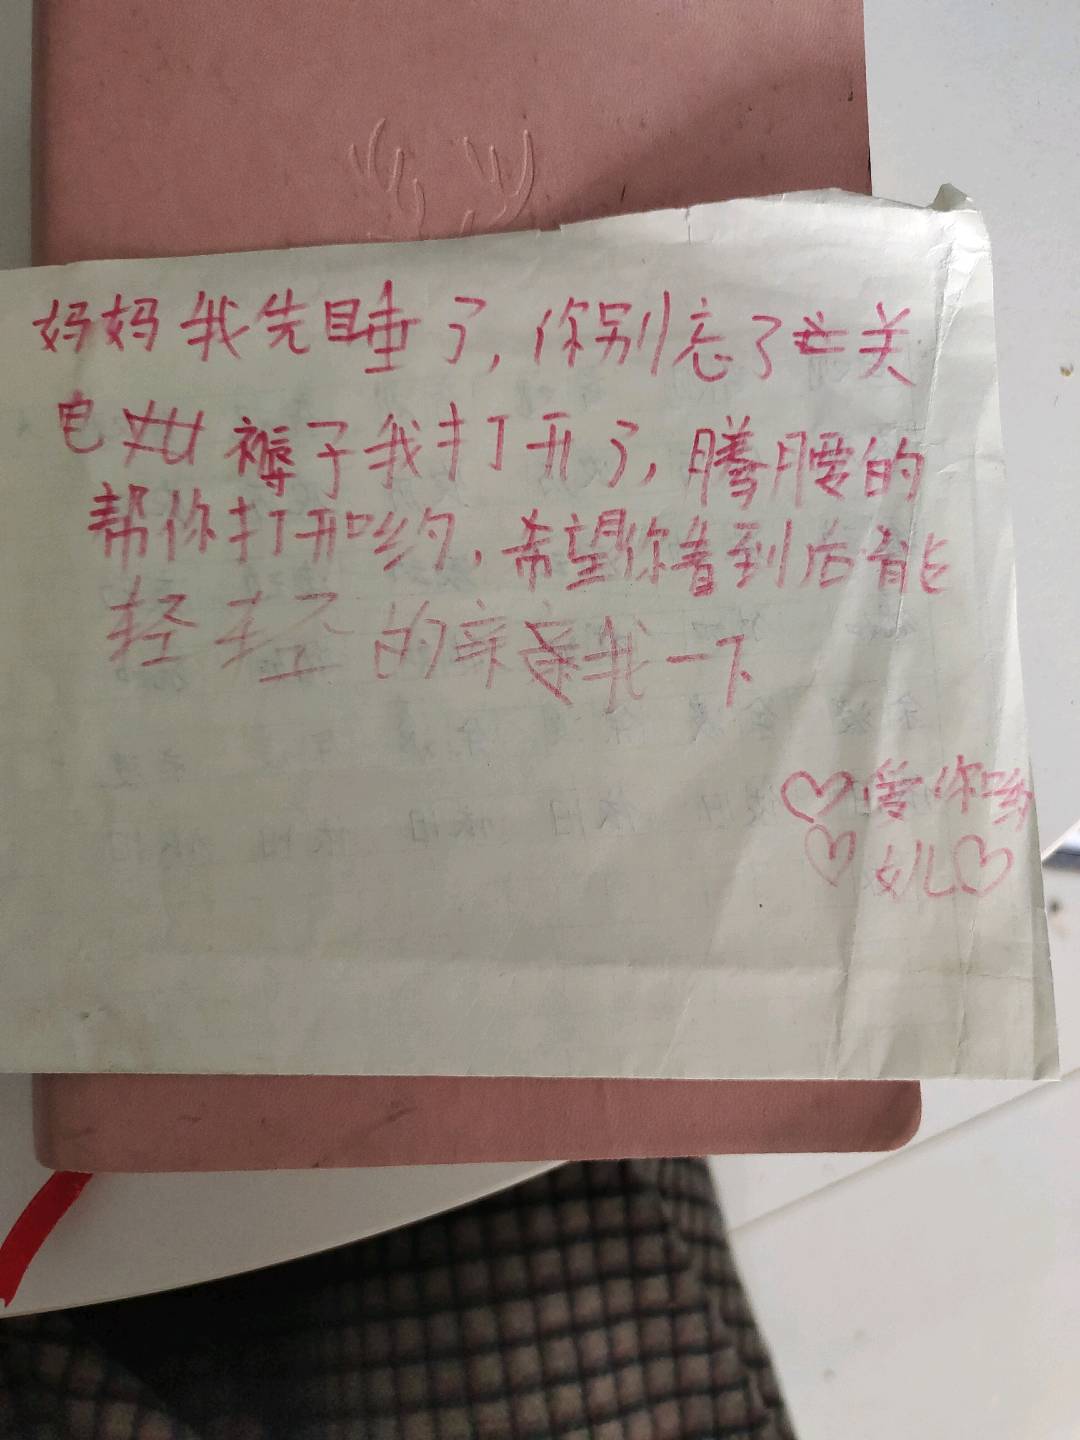 妈妈我先睡了,你别忘了关
电 褥子我打开了,腾腰的
帮你打开哟,希望你看到后能
轻轻的亲亲我一下
爱你哟
女儿